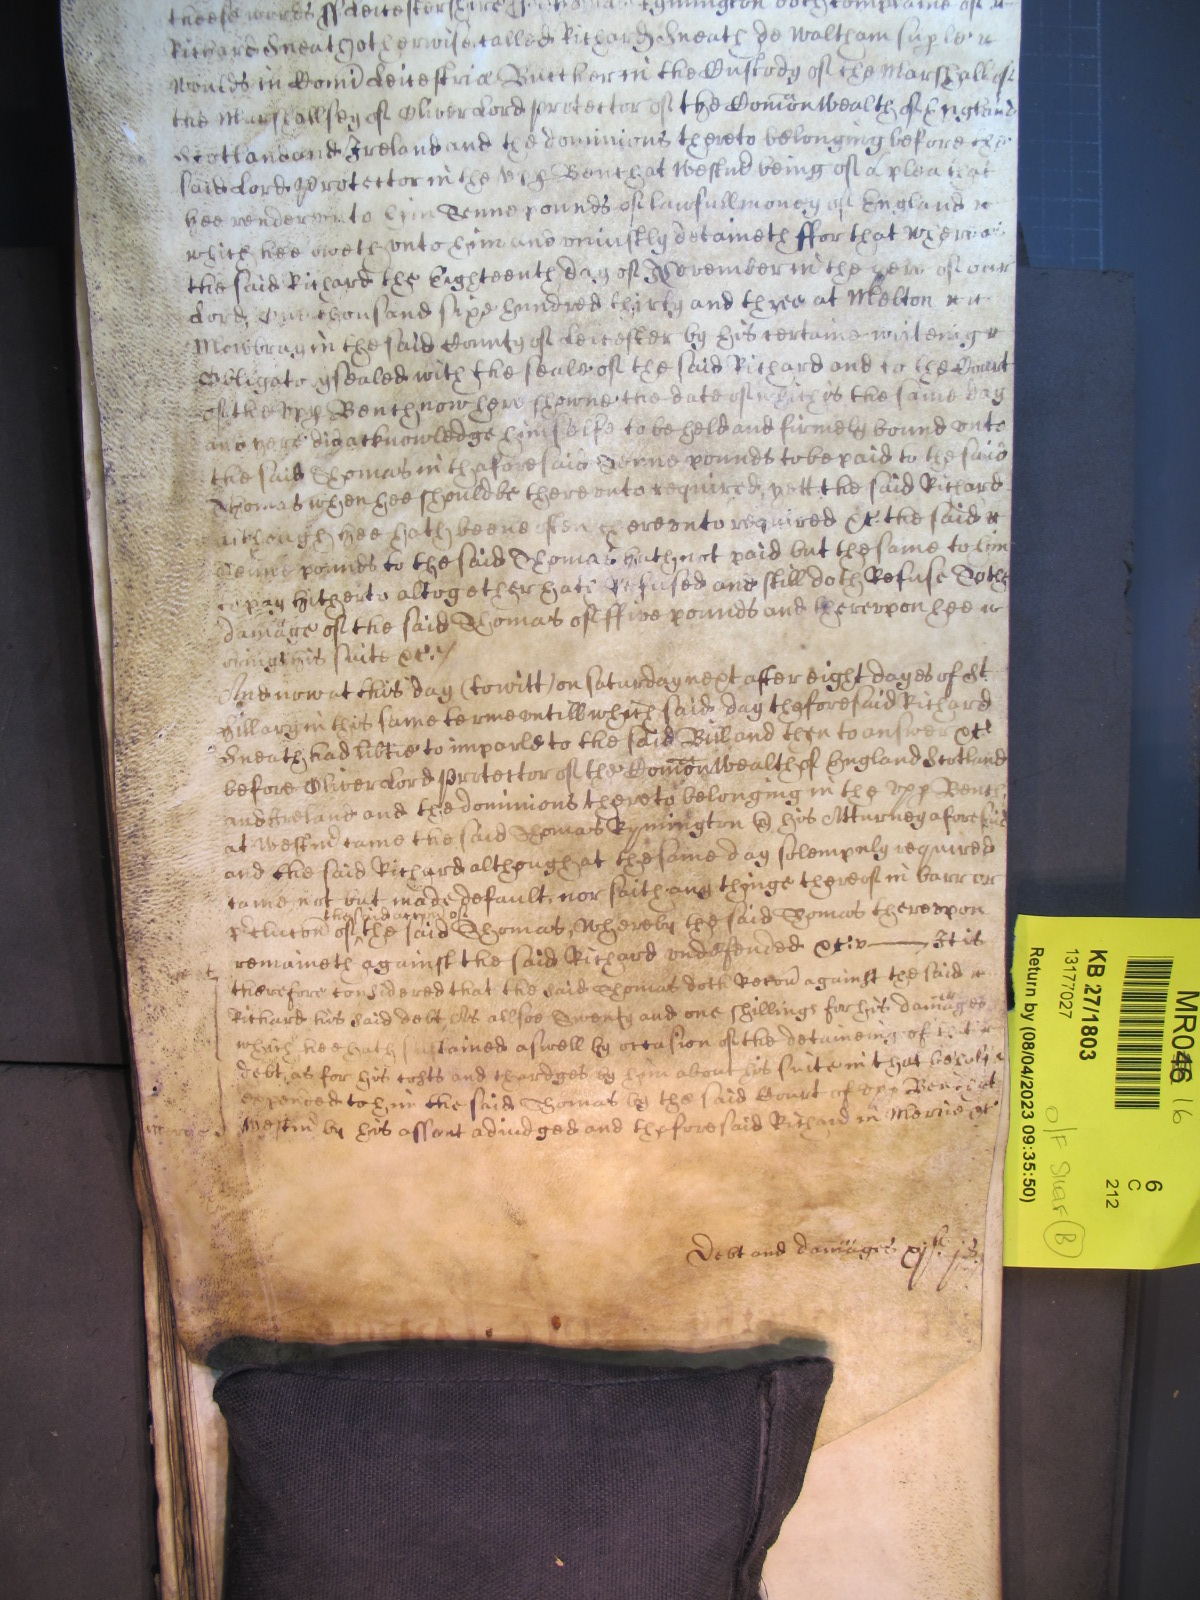 theese words ss Leicestershire ss Thomas Rymington doth complaine of
Richard Sneath otherwise called Richard Sneath de Waltham super le
woulds in Comit Leicestrie Butcher in the Custody of the Marshall of
the Marshallsey of Oliver Lord protector of the Comonwealth of England
Scotland and Ireland and the dominions thereto belonging before the
said Lord Protector in the upp Bench at Westm being of a plea that
hee render unto him Tenne pounds of lawfull money of England
which hee oweth unto him and uniustly detaineth ffor that whereas
the said Richard the Eighteenth day of November in the yere of our
Lord One thousand sixe hundred thirty and three at Melton
Mowbray in the said County of Leicester by his certaine writeing
Obligatory sealed with the seale of the said Richard and to the Court
of the upp Bench now here showne the date of which is the same day
and yere did acknowledge himselfe to be held and firmely bound unto
the said Thomas in thaforesaid Tenne pounds to be paid to the said
Thomas when hee should be thereunto required, yett the said Richard
although hee hath beene often thereunto required &c the said
Tenne pounds to the said Thomas hath not paid but the same to him
to pay hitherto altogether hath Refused and still doth Refuse To the
damage of the said Thomas of ffive pounds and thereupon hee
bringe his suite &c
And now at this day (to witt) on Saturday next after eight dayes of St
Hillary in this same terme untill which said day thaforesaid Richard
Sneath had libtie to imparle to the said Bill and then to answer &c
before Oliver Lord protector of the Comonwealth of England Scotland
and Ireland and the dominions thereto belonging in the upp Bench
at Westm came the said Thomas Rymington by his Atturney aforesaid
and the said Richard although at the same day solempnly required
came not but made default, nor saith any thinge thereof in barr or
the said accion of
pclucon of the said Thomas, Whereby the said Thomas thereupon
remaineth against the said Richard undefended &c It is
therefore considered that the said Thomas doth Recou against the said
Richard his said debt As allsoe Twenty and one shillings for his damages
which hee hath sustained aswell by occasion of the detaineing of that
debt, as for his costs and chardges by him about his suite in that behalfe
expended to him the said Thomas by the said Court of upp Bench at
Westm by his assent adiudged and thaforesaid Richard in Mercie &c
Debt and damages xjli js
MR046
16
6
C
212
KB 27/1803
13177027
Return by (08/04/2023 09:35:50)
O/F Shelf B